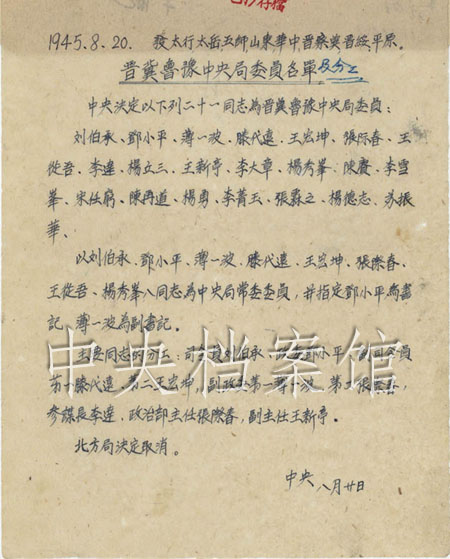 1945.8.20. 發太行太岳五師山東華中晋察冀晋綏平原。
晋冀魯豫中央局委員名單及分工
中央決定以下列二十一同志為晋冀魯豫中央局委員：
刘伯承、鄧小平、薄一波、滕代遠、王宏坤、張際春、王
從吾、李達、楊立三、王新亭、李大章、楊秀峯、陳賡、李雪
峯、宋任窮、陳再道、楊勇、李菁玉、張霖之、楊德志、苏振
華、
以刘伯承、鄧小平、薄一波、滕代遠、王宏坤、張際春、
王從吾、楊秀峯八同志為中央局常委委員，并指定鄧小平為書
記、薄一波為副書記。
主要同志的分工：司令員刘伯承、政委鄧小平，副司令員
第一滕代遠、第二王宏坤，副政委第一薄一波，第二張際春，
參謀長李達，政治部主任張際春，副主任王新亭。
北方局決定取消。
中央 八月廿日
中央档案馆